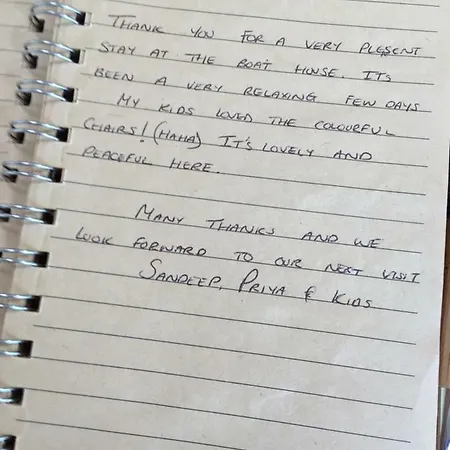 THANK YOU FOR A VERY PLESENT
STAY AT THE BOAT HOUSE. IT'S
BEEN A VERY RELAXING FEW DAYS
MY KIDS LOVED THE COLOURFUL
CHAIRS! (HAHA) IT'S LOVELY AND
PEACEFUL HERE.
MANY THANKS AND WE
LOOK FORWARD TO OUR NEXT VISIT
SANDEEP, PRIYA & KIDS